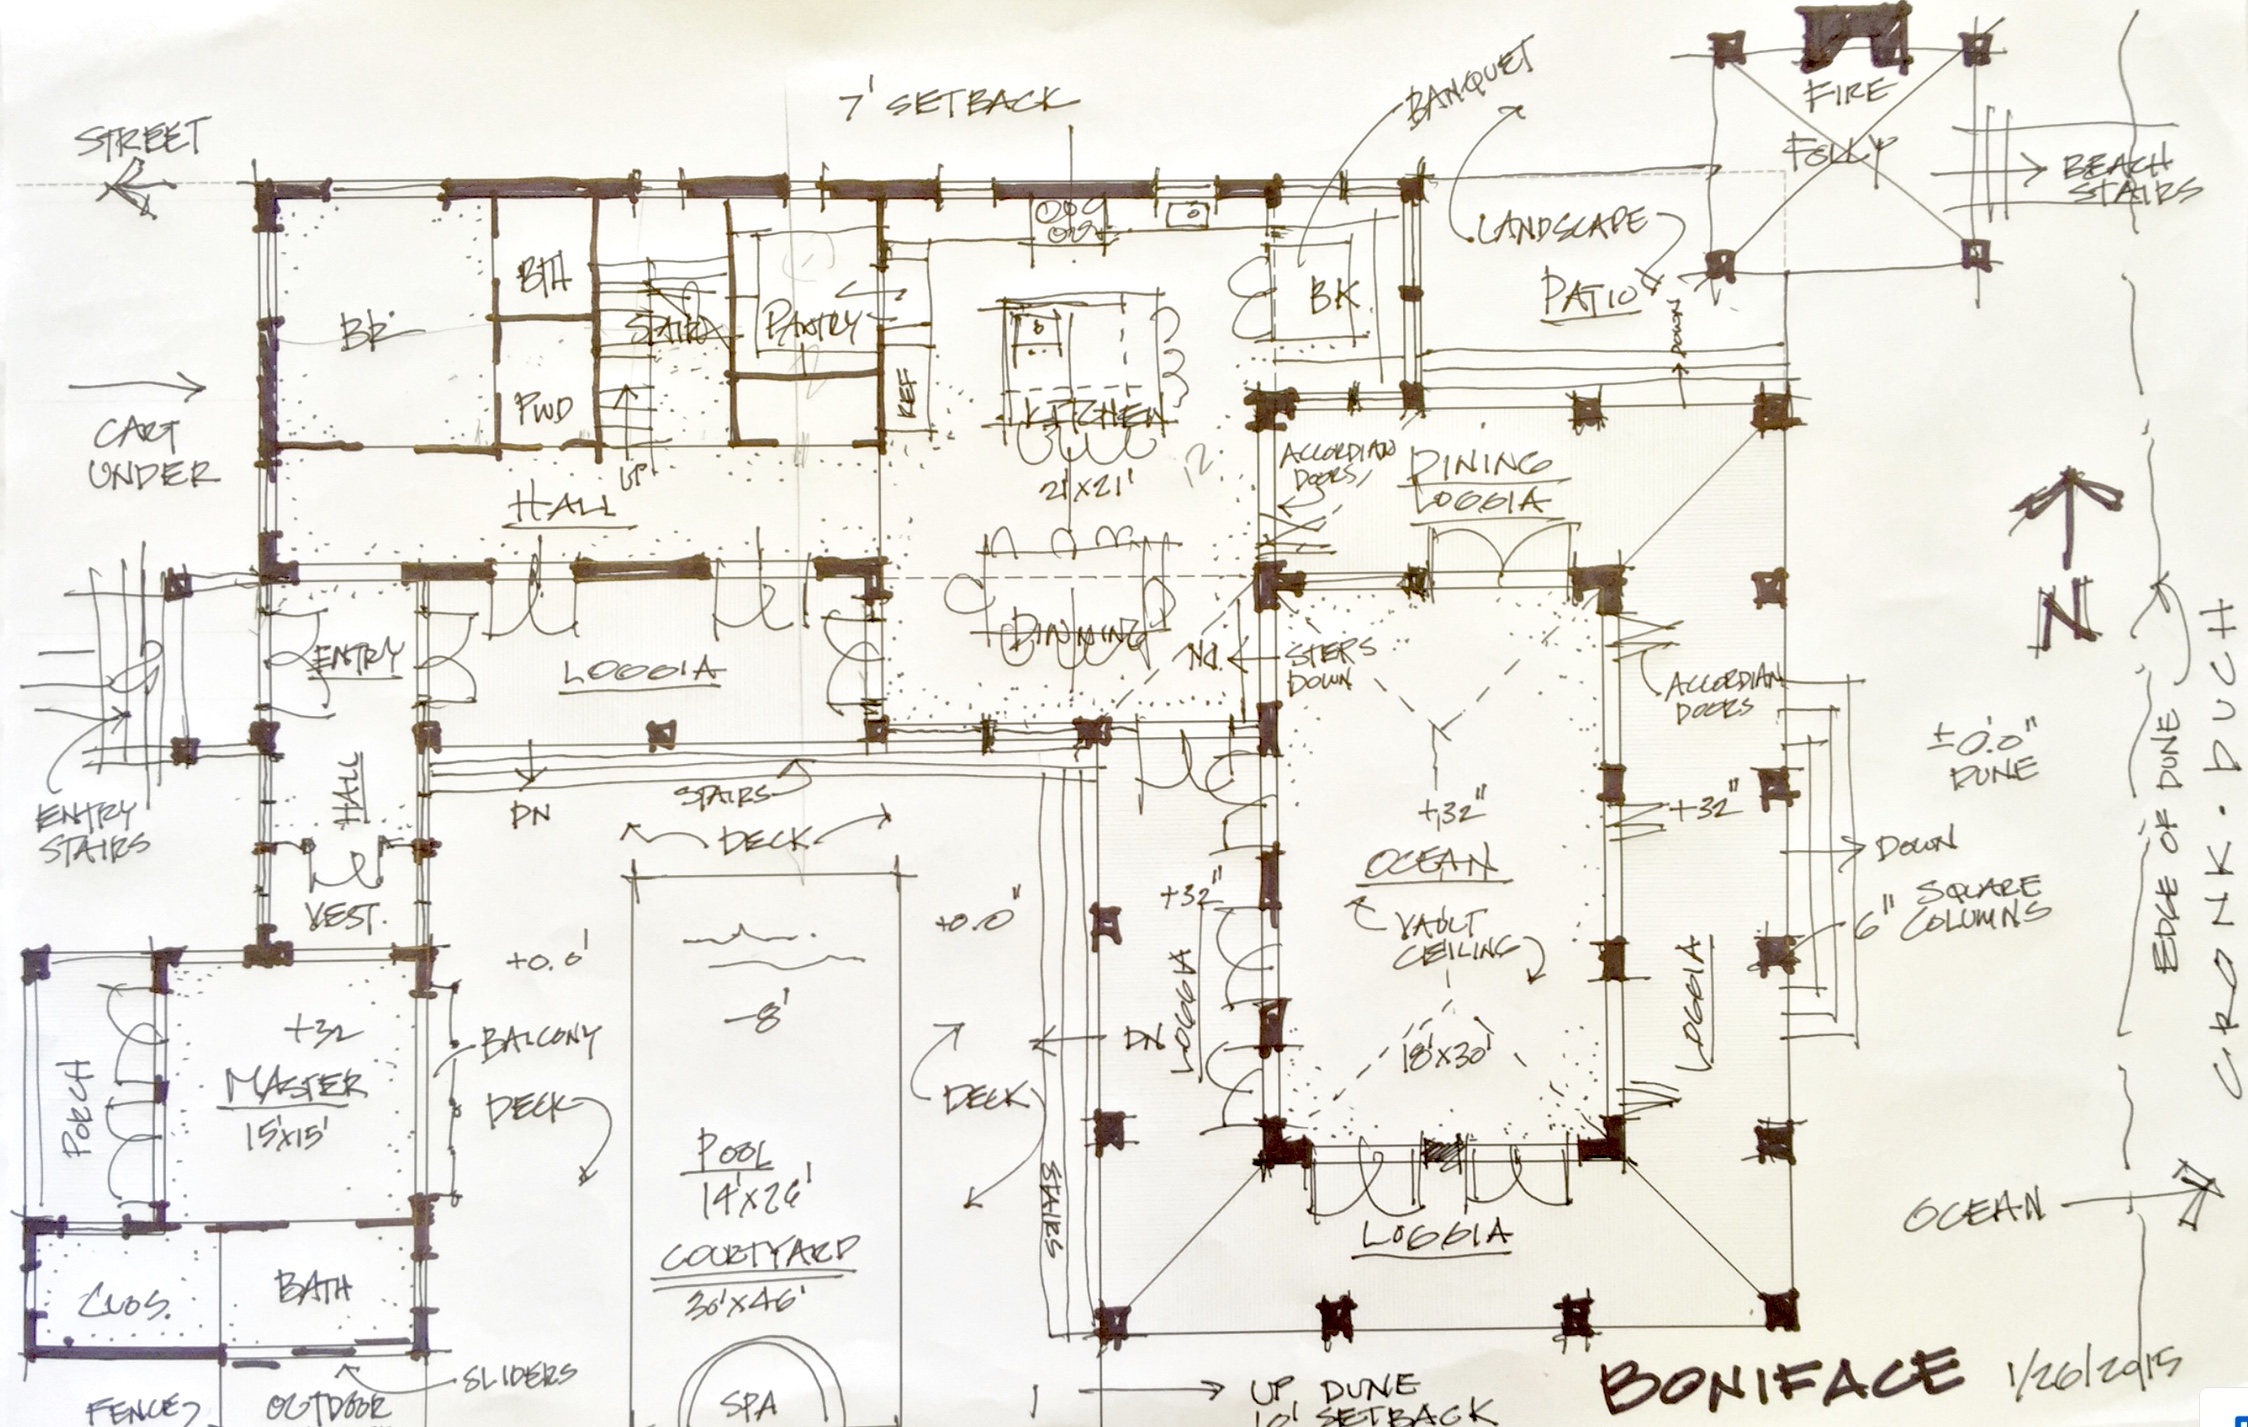 7' SETBACK
STREET
BANQUET
FIRE
FOLLY
BEACH
STAIRS
LANDSCAPE
PATIO
DOWN
BR
BTH
PWD
STAIR
UP
PANTRY
REF
KITCHEN
21'X21'
BK
CART
UNDER
HALL
ACCORDIAN
DOORS
DINING
LOGGIA
N
ENTRY
LOGGIA
DINNING
DN
STEPS
DOWN
ACCORDIAN
DOORS
±0.0"
DUNE
EDGE OF DUNE
CRONK.DUCH
ENTRY
STAIRS
HALL
VEST.
DN
STAIRS
DECK
+32"
OCEAN
VAULT
CEILING
18'X30'
+32"
LOGGIA
DOWN
6" SQUARE
COLUMNS
+32"
LOGGIA
DN
+0.0'
+0.0"
-8'
BALCONY
DECK
DECK
STAIRS
PORCH
+32
MASTER
15'X15'
POOL
14'X26'
COURTYARD
30'X46'
SPA
CLOS.
BATH
SLIDERS
FENCE
OUTDOOR
LOGGIA
OCEAN
UP DUNE
10' SETBACK
BONIFACE
1/26/2015